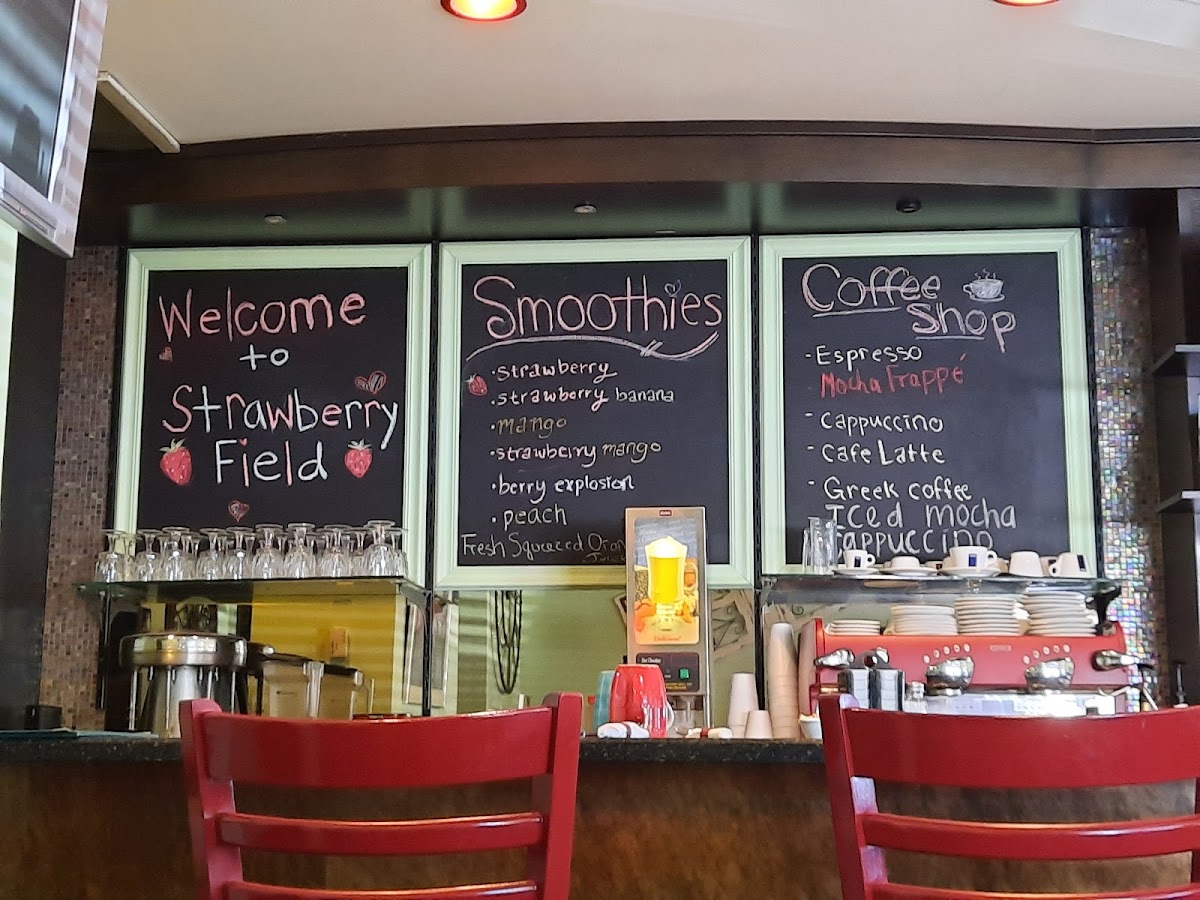 Welcome
to
Strawberry
Field
Smoothies
• strawberry
• strawberry banana
• mango
• strawberry mango
• berry explosion
• peach
Fresh Squeezed
Coffee
Shop
- Espresso
Mocha Frappé
- Cappuccino
- Cafe Latte
- Greek coffee
Iced mocha
Cappuccino